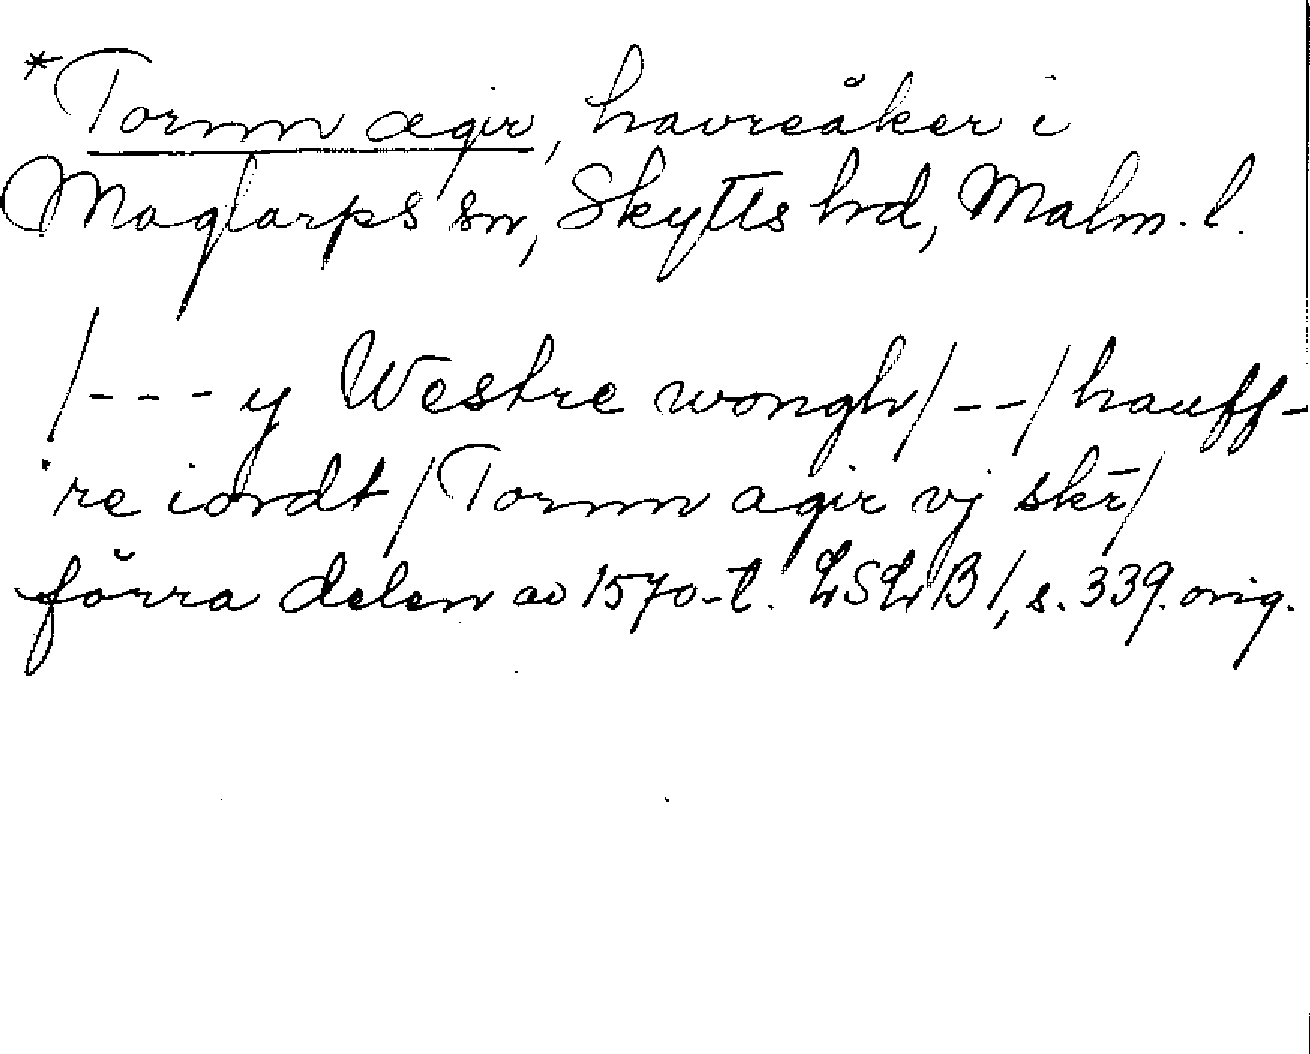 *Tornn agir, havreåker i
Maglarps sn, Skytts hd, Malm. l.
/--- y Westre wongh/--/hauff-
re iordt/Tornn agir vj skr̄/
förra delen av 1570-t. LSLB1, s. 339. orig.